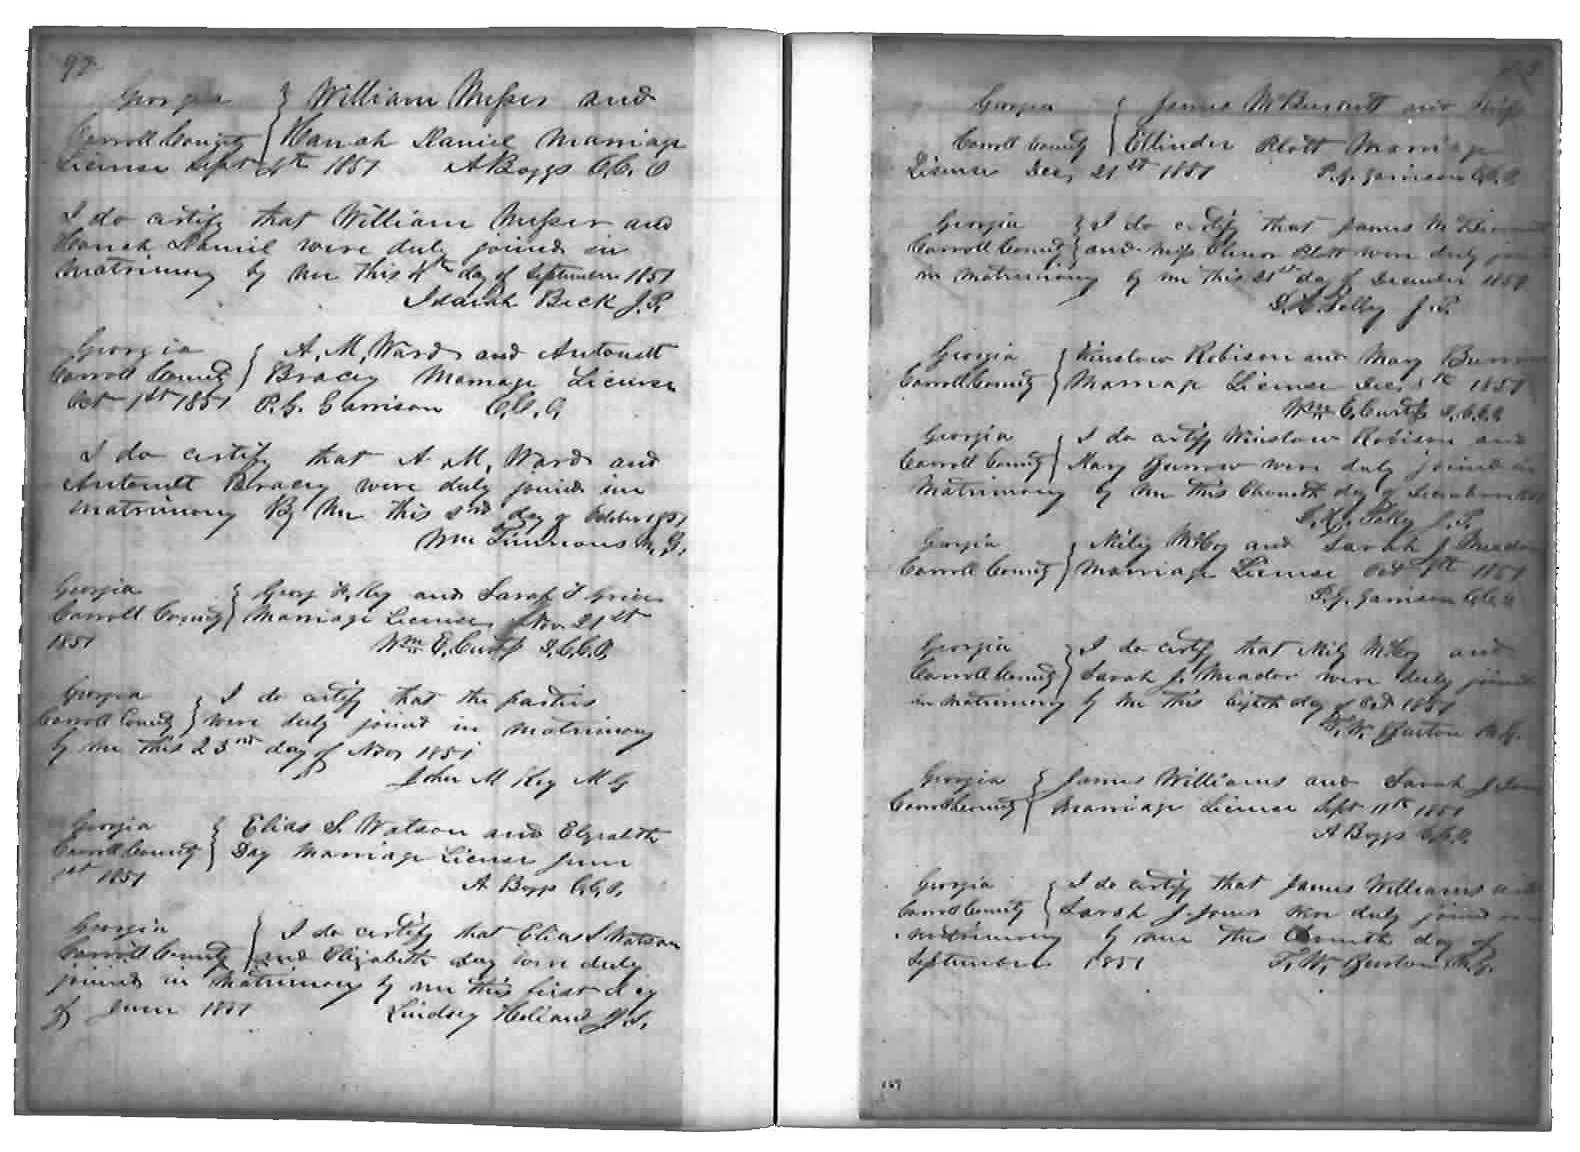 Georgia } William Messer and
Carroll County } Hanah Daniel Marriage
License Sept 4th 1851 A Boggs C.C.O
I do certify that William Messer and
Hanah Daniel were duly joined in
Matrimony by me this 4th day of September 1851
Isaiah Beck J.P.
Georgia } A. M. Ward and Antonett
Carroll County } Bracey Marriage License
Oct 1st 1851 P. G. Garrison C.C.O.
I do certify that A. M. Ward and
Antonett Bracey were duly joined in
matrimony By Me this 2nd day of October 1851
Wm Timmons M.G.
Georgia } Georg Key and Sarah F Grice
Carroll County } Marriage License Nov 21st
1851 Wm E. Curtis D.C.C.O.
Georgia } I do certify that the parties
Carroll County } were duly joined in matrimony
by me this 23rd day of Nov 1851
John M Key M G
Georgia } Elias S. Watson and Elizabeth
Carroll County } Day Marriage License June
1st 1851 A Boggs C.C.O.
Georgia } I do certify that Elias S. Watson
Carroll County } and Elizabeth Day were duly
joined in Matrimony by me this first day
of June 1851 Lindsey
Georgia } James McBurnett and Miss
Carroll County } Ellinder Plott Marriage
License Dec, 21st 1851 P. G. Garrison C.C.O.
Georgia } I do certify that James M
Carroll County } and Miss Elinor Plott were duly
in matrimony by me this 21st day of December 1851
Tolley J.P.
Georgia } Winslow Robison and Mary
Carroll County } Marriage License Dec, 1851
Wm E. Curtis D.C.C.O.
Georgia } I do certify Winslow Robison and
Carroll County } Mary Burrow were duly joined in
Matrimony by Me this day of
Tolley J.P.
Georgia } McCoy and Sarah J. Meador
Carroll County } Marriage License Oct 1851
P. G. Garrison C.C.O.
Georgia } I do certify that McCoy and
Carroll County } Sarah J. Meador were duly joined
in Matrimony by Me this eighth day of Oct 1851
T. W. Burton M.G.
Georgia } James Williams and Sarah J
Carroll County } Marriage License Sept 11th 1851
A Boggs C.C.O.
Georgia } I do certify that James Williams and
Carroll County } Sarah J. Jones were duly joined in
matrimony by me this day of
September 1851 T. W. Burton M.G.